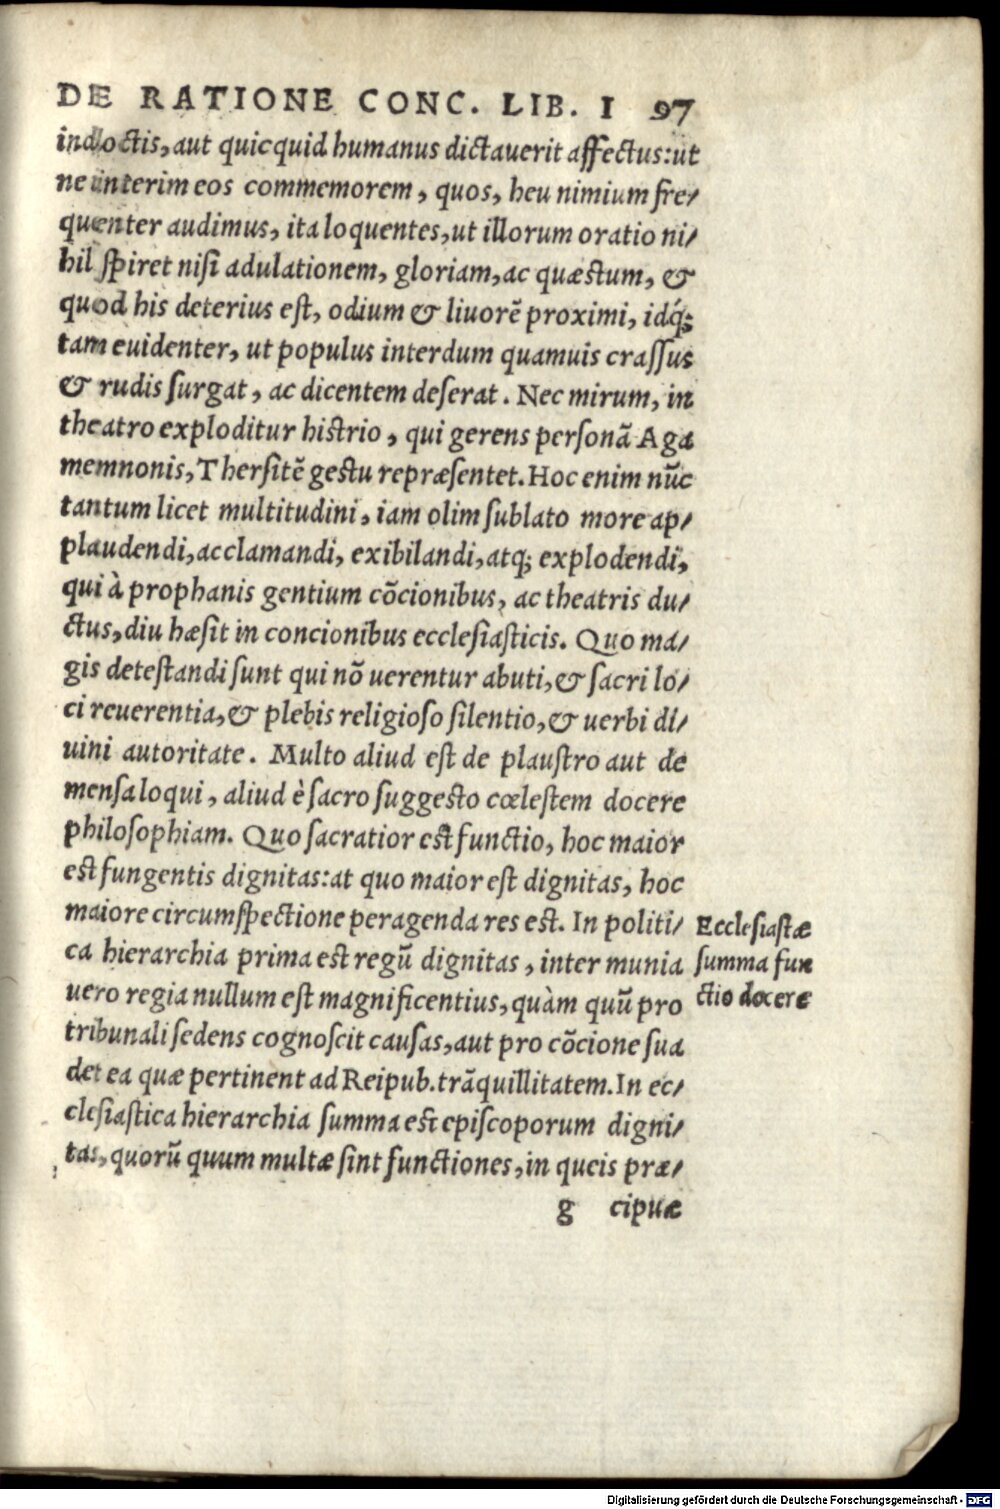 DE RATIONE CONC. LIB. I 97
indoctis, aut quicquid humanus dictauerit affectus: ut
ne interim eos commemorem, quos, heu nimium fre/
quenter audimus, ita loquentes, ut illorum oratio ni/
hil spiret nisi adulationem, gloriam, ac quæstum, &
quod his deterius est, odium & liuorē proximi, idq́;
tam euidenter, ut populus interdum quamuis crassus
& rudis surgat, ac dicentem deserat. Nec mirum, in
theatro exploditur histrio, qui gerens personā Aga
memnonis, Thersitē gestu repræsentet. Hoc enim nūc
tantum licet multitudini, iam olim sublato more ap/
plaudendi, acclamandi, exibilandi, atq; explodendi,
qui à prophanis gentium cōcionibus, ac theatris du/
ctus, diu hæsit in concionibus ecclesiasticis. Quo ma/
gis detestandi sunt qui nō uerentur abuti, & sacri lo/
ci reuerentia, & plebis religioso silentio, & uerbi di/
uini autoritate. Multo aliud est de plaustro aut de
mensa loqui, aliud è sacro suggesto cœlestem docere
philosophiam. Quo sacratior est functio, hoc maior
est fungentis dignitas: at quo maior est dignitas, hoc
maiore circumspectione peragenda res est. In politi/
ca hierarchia prima est regū dignitas, inter munia
uero regia nullum est magnificentius, quàm quū pro
tribunali sedens cognoscit causas, aut pro cōcione sua
det ea quæ pertinent ad Reipub. trāquillitatem. In ec/
clesiastica hierarchia summa est episcoporum digni/
tas, quorū quum multæ sint functiones, in queis præ/
g cipuæ
Ecclesiastæ
summa fun
ctio docere
Digitalisierung gefördert durch die Deutsche Forschungsgemeinschaft - DFG